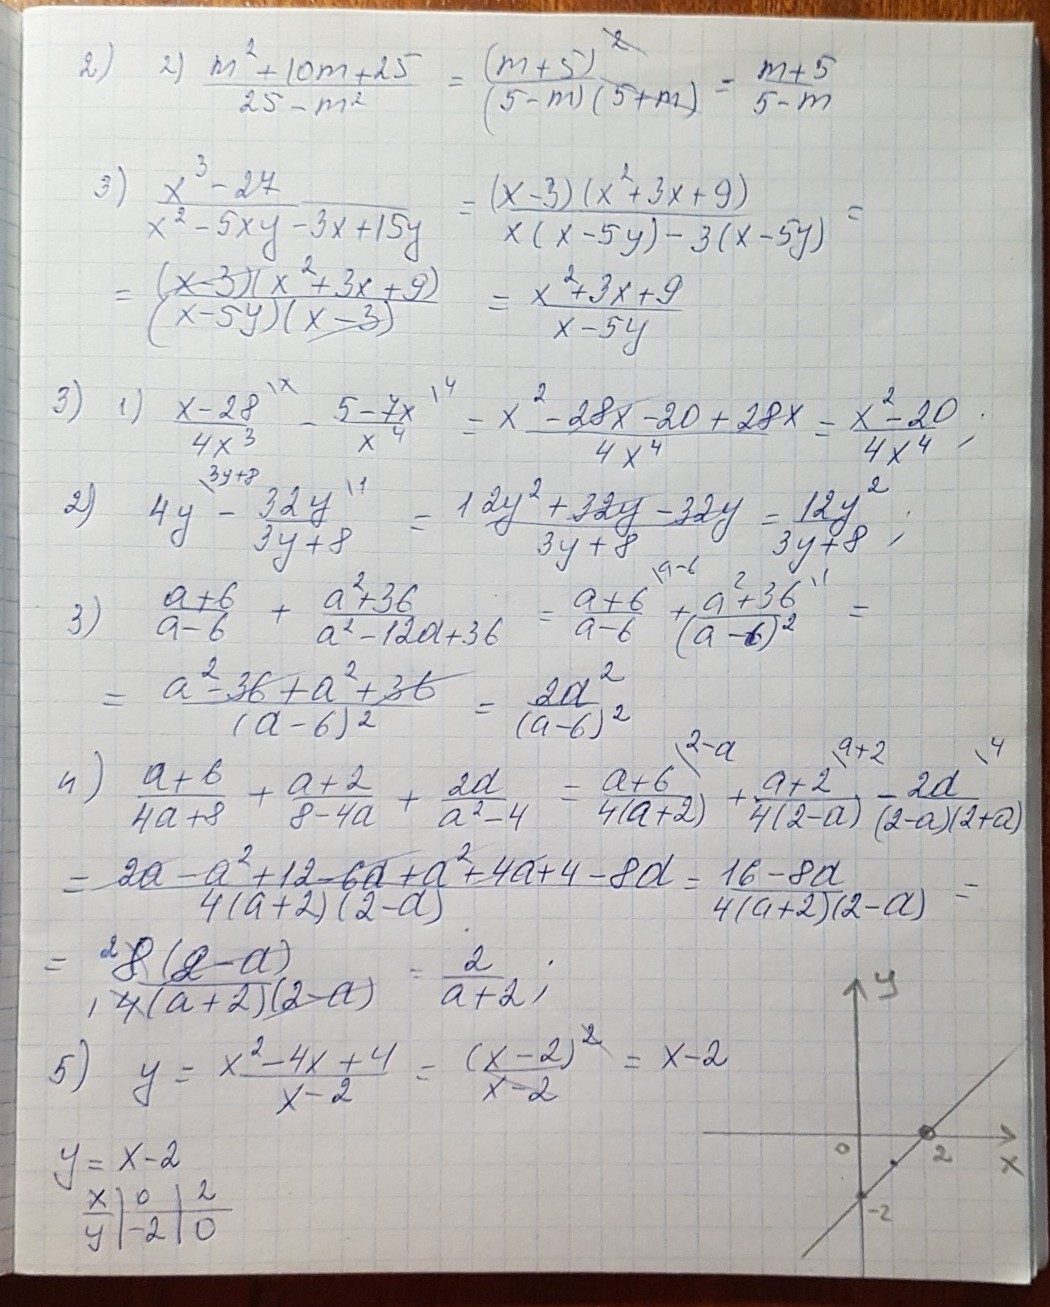 2) 2) (m²+10m+25)/(25-m²) = (m+5)²/((5-m)(5+m)) = (m+5)/(5-m)
3) (x³-27)/(x²-5xy-3x+15y) = ((x-3)(x²+3x+9))/(x(x-5y)-3(x-5y)) =
= ((x-3)(x²+3x+9))/((x-5y)(x-3)) = (x²+3x+9)/(x-5y)
3) 1) (x-28)/(4x³) \x - (5-7x)/(x⁴) \4 = (x²-28x-20+28x)/(4x⁴) = (x²-20)/(4x⁴);
2) 4y \3y+8 - 32y/(3y+8) \1 = (12y²+32y-32y)/(3y+8) = 12y²/(3y+8);
3) (a+6)/(a-6) + (a²+36)/(a²-12a+36) = (a+6)/(a-6) \a-6 + (a²+36)/(a-6)² \1 =
= (a²-36+a²+36)/(a-6)² = 2a²/(a-6)²
4) (a+6)/(4a+8) + (a+2)/(8-4a) + 2a/(a²-4) = (a+6)/(4(a+2)) \2-a + (a+2)/(4(2-a)) \a+2 - 2a/((2-a)(2+a)) \4
= (2a-a²+12-6a+a²+4a+4-8a)/(4(a+2)(2-a)) = (16-8a)/(4(a+2)(2-a)) =
= 2 8(2-a)/(1 4(a+2)(2-a)) = 2/(a+2);
5) y = (x²-4x+4)/(x-2) = (x-2)²/(x-2) = x-2
y = x-2
x | 0 | 2
y | -2 | 0
y
0 2 x
-2